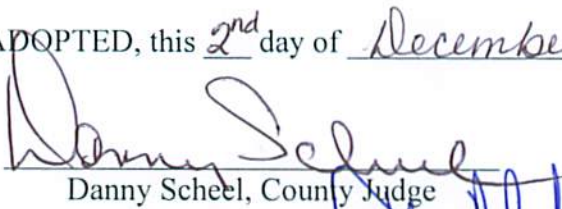 ADOPTED, this 2nd day of Decembe
Danny Scheel
Danny Scheel, County Judge